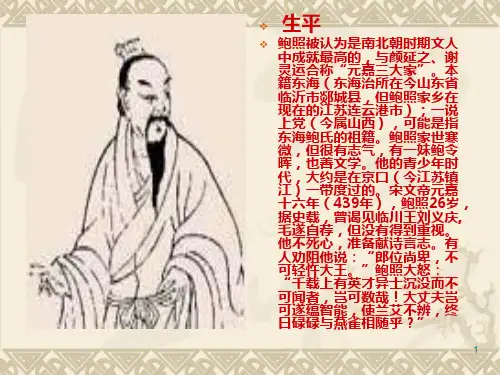 生平
鲍照被认为是南北朝时期文人
中成就最高的，与颜延之、谢
灵运合称“元嘉三大家”。本
籍东海（东海治所在今山东省
临沂市郯城县，但鲍照家乡在
现在的江苏连云港市）；一说
上党（今属山西），可能是指
东海鲍氏的祖籍。鲍照家世寒
微，但很有志气，有一妹鲍令
晖，也善文学。他的青少年时
代，大约是在京口（今江苏镇
江）一带度过的。宋文帝元嘉
十六年（439年），鲍照26岁，
据史载，曾谒见临川王刘义庆,
毛遂自荐，但没有得到重视。
他不死心，准备献诗言志。有
人劝阻他说：“郎位尚卑，不
可轻忤大王。”鲍照大怒：
“千载上有英才异士沉没而不
可闻者，岂可数哉！大丈夫岂
可遂蕴智能，使兰艾不辨，终
日碌碌与燕雀相随乎？”
1